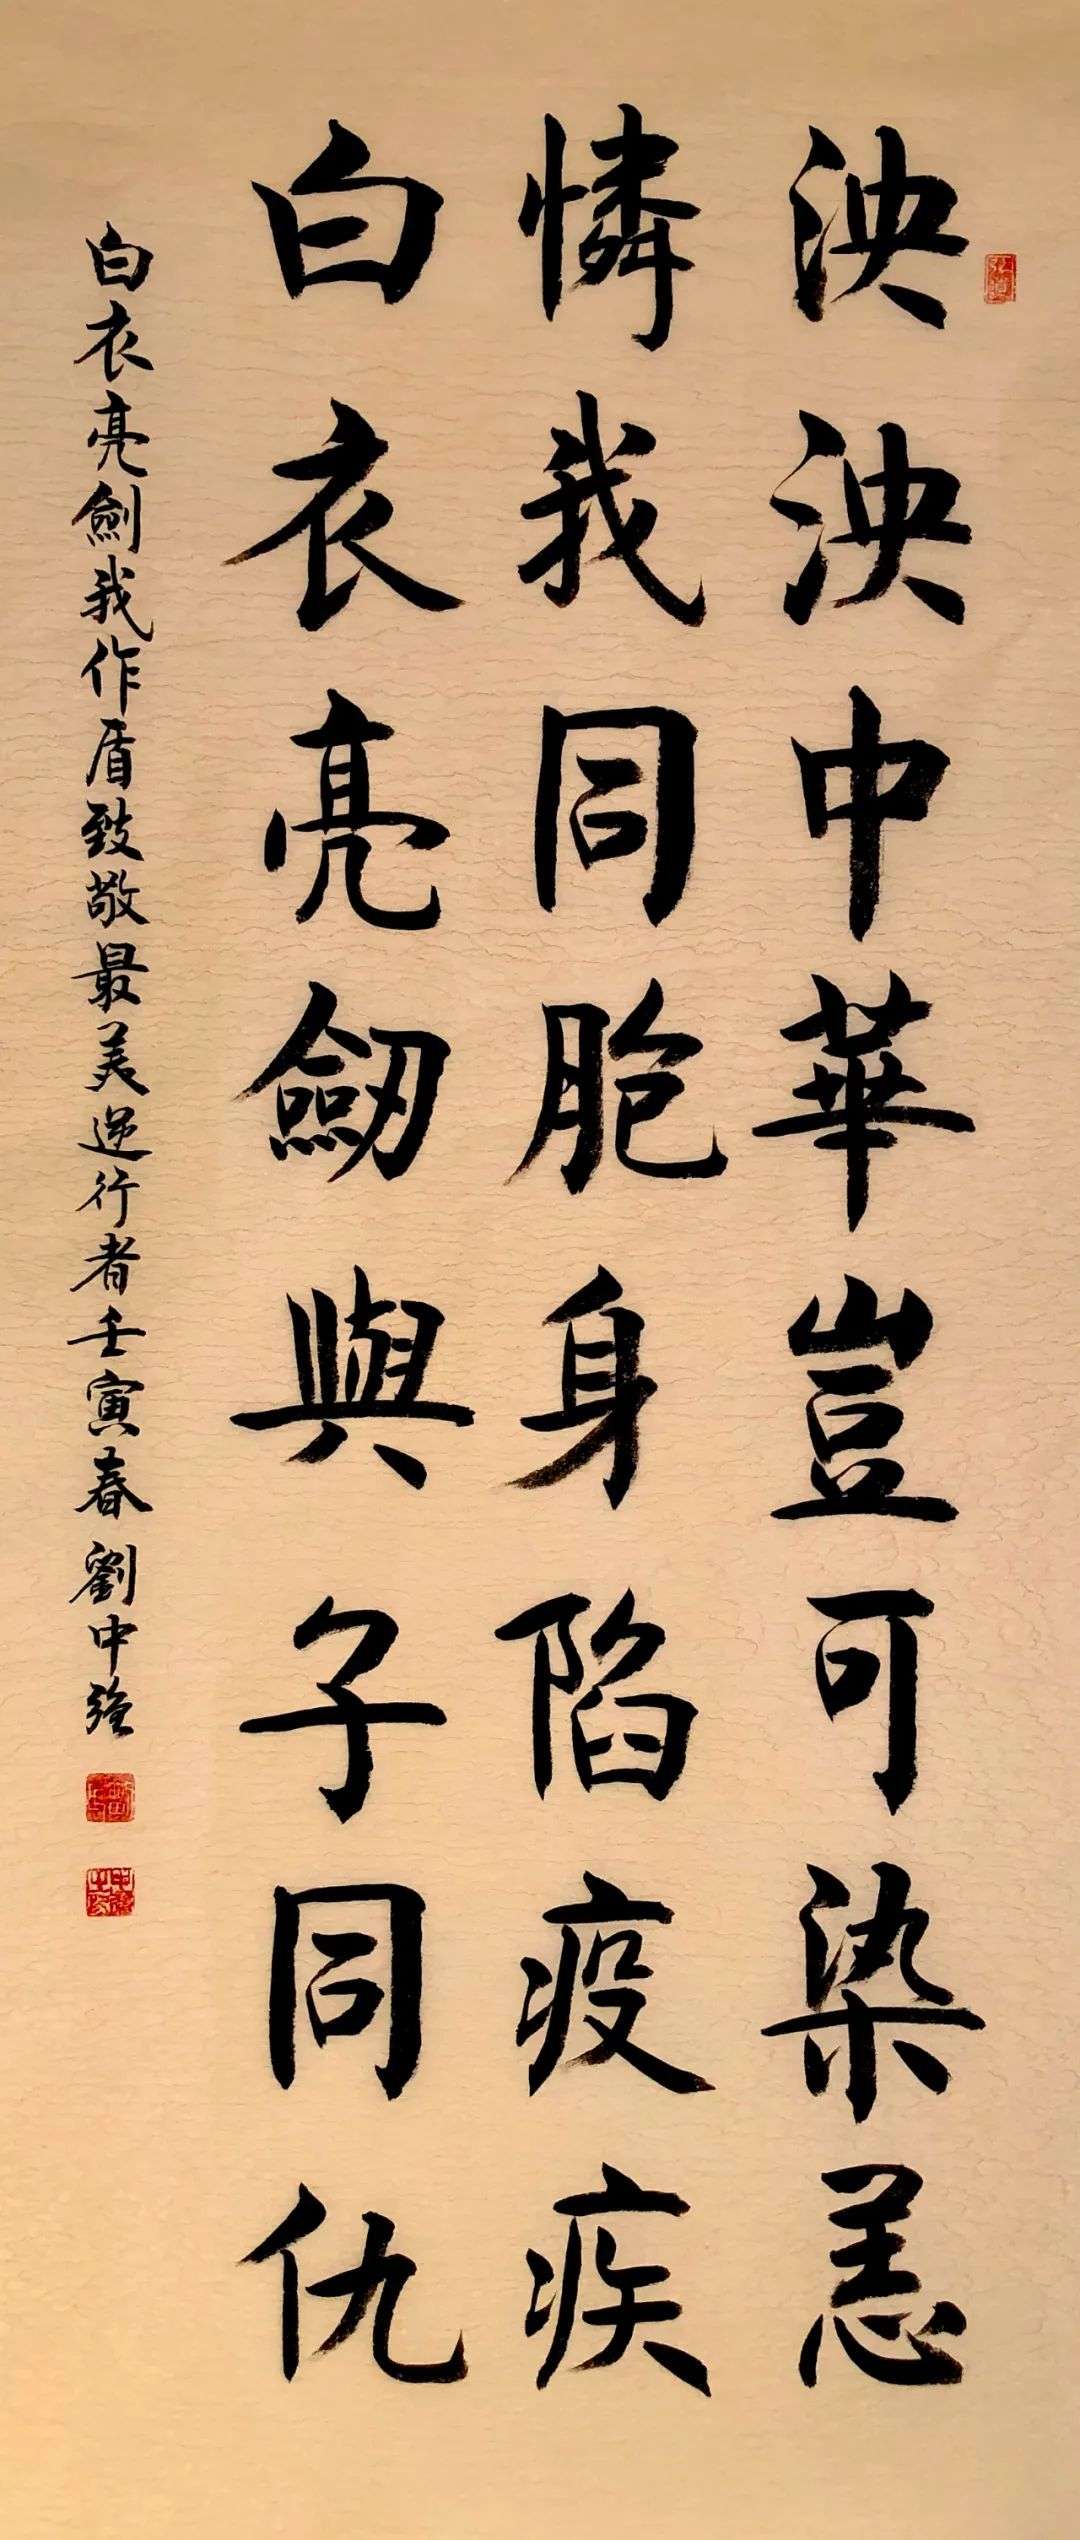 泱泱中華豈可染恙
憐我同胞身陷疫疾
白衣亮劒與子同仇
白衣亮劍我作盾致敬最美逆行者壬寅春劉中強